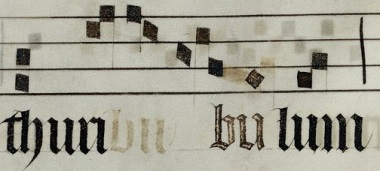 thuri bu bu lum